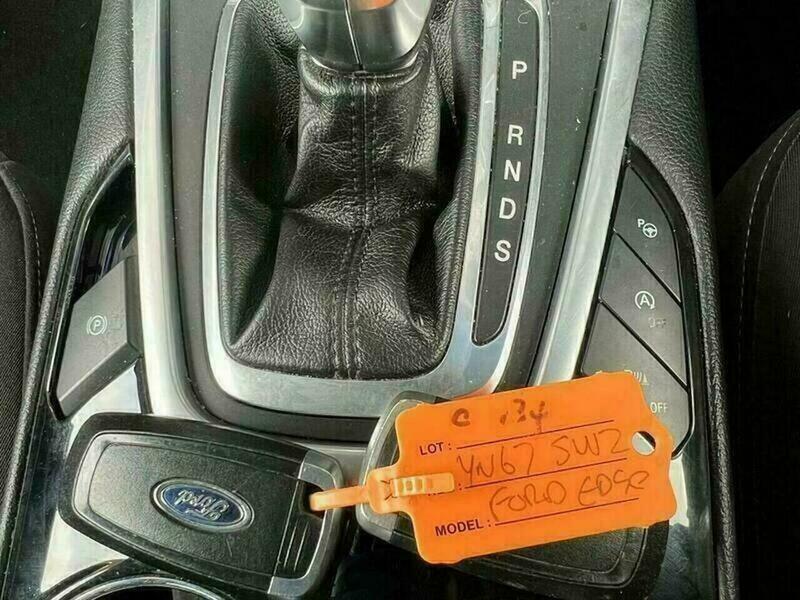 P
R
N
D
S
P
A
OFF
OFF
P
Ford
C 34
LOT:
YN67 SWZ
FORD EDGE
MODEL: